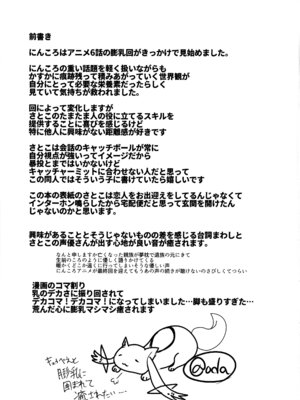 前書き
にんころはアニメ6話の膨乳回がきっかけで見始めました。
にんころの重い話題を軽く扱いながらも
かすかに痕跡残って積みあがっていく世界観が
自分にとって必要な栄養素だったらしく
見ていて気持ちが救われました。
回によって変化しますが
さとこのたまたま人の役に立てるスキルを
提供することに喜びを感じるけど
特に他人に興味がない距離感が好きです
さとこは会話のキャッチボールが常に
自分視点が強いってイメージだから
暴投とまではいかないけど
キャッチャーミットに合わせない人だと思って
この同人ではそういう子に書けていたら嬉しいです
この本の表紙のさとこは恋人をお出迎えしてるんじゃなくて
インターホン鳴らしたから宅配便だと思って玄関を開けたん
じゃないのかと思います。
興味があることとそうじゃないものの差を感じる台詞まわしと
さとこの声優さんが出す心地が良い音が癒されます。
なんと申しますか亡くなった親族が夢枕で遺族の元にきて
生前のころのように優しく語りかけてくる
暖かくどこか遠くに行ってしまいそうな優しい声
にんころアニメが最終回を迎えてもうあの声の続きが聴けないのさびしくてつらい
漫画のコマ割り
乳のデカさに振り回されて
デカコマ！デカコマ！になってしまいました…脚も盛りすぎた…
荒んだ心に膨乳マシマシ癒されます
膨乳に
囲まれて
癒されたい…